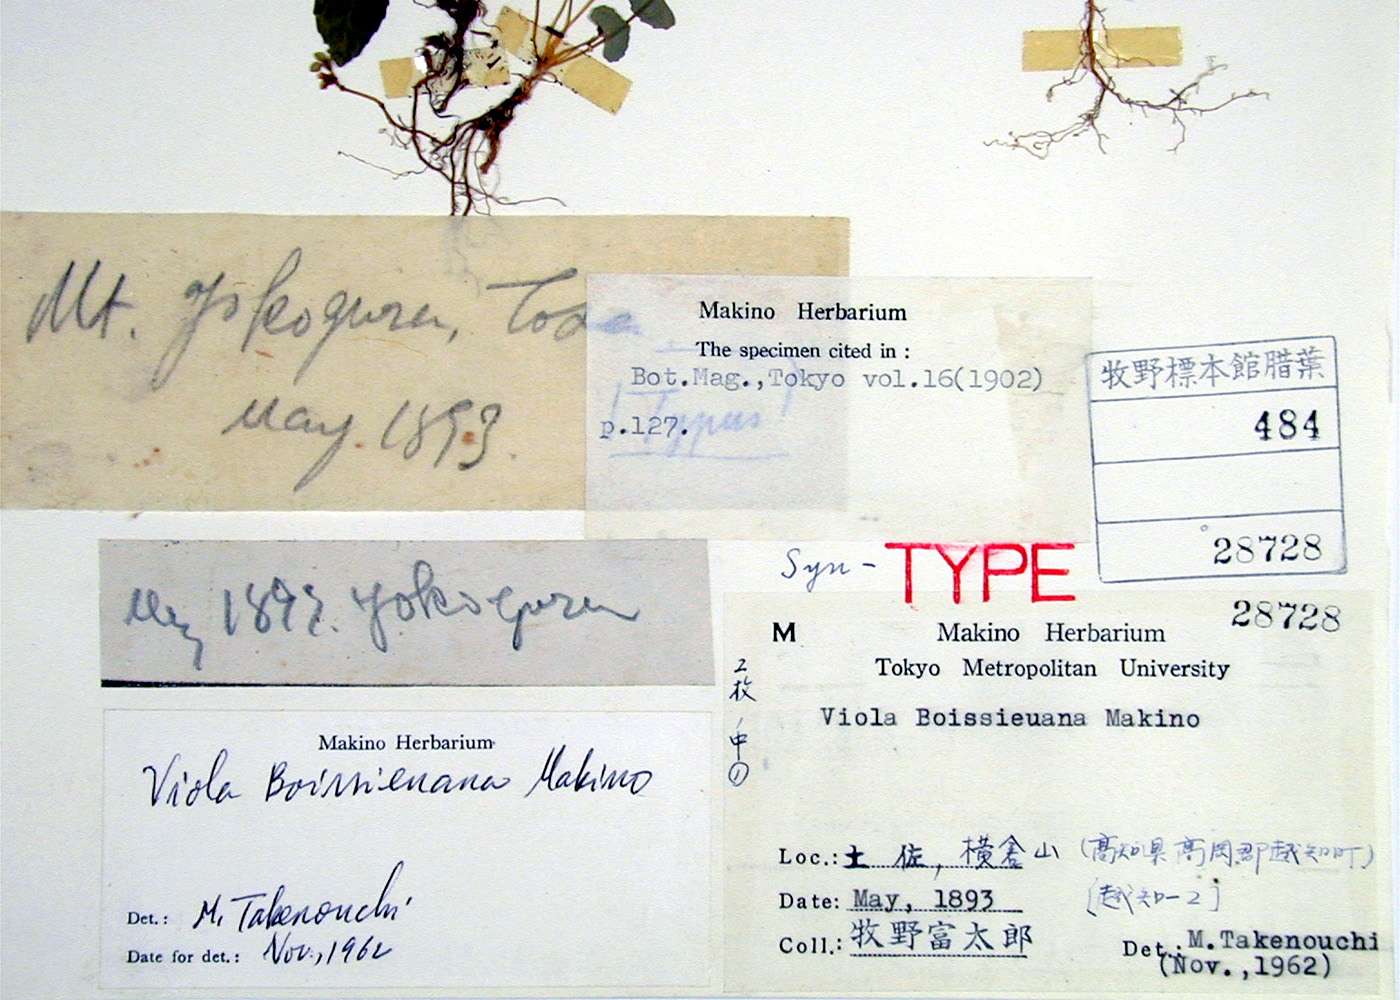 Mt. Yokogura, Tosa
May. 1893.
Makino Herbarium
The specimen cited in :
Bot.Mag.,Tokyo vol.16(1902)
p.127.
! Typus !
牧野標本館腊葉
484
28728
May 1893. Yokogura
Syn - TYPE
28728
M Makino Herbarium
Tokyo Metropolitan University
Viola Boissieuana Makino
2枚ノ中①
Loc.: 土 佐, 横倉山 (高知県高岡郡越知町)
Date: May, 1893 [越知-2]
Coll.: 牧野富太郎 Det.: M.Takenouchi
(Nov.,1962)
Makino Herbarium
Viola Boissieuana Makino
Det.: M. Takenouchi
Date for det.: Nov., 1962